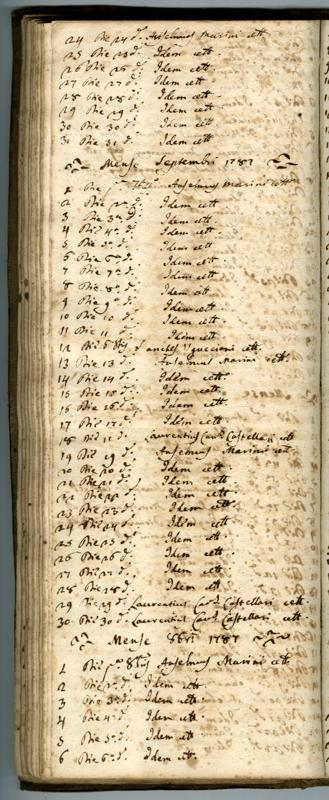 24 Die 24 d.º Anselmus Marini cett.
25 Die 25 d.º Idem cett.
26 Die 26 d.º Idem cett.
27 Die 27 d.º Idem cett.
28 Die 28 d.º Idem cett.
29 Die 29 d.º Idem cett.
30 Die 30 d.º Idem cett.
31 Die 31 d.º Idem cett.
Mense Septembri 1787
1 Die Anselmus Marini cett.
2 Die 2ª d.º Idem cett.
3 Die 3ª d.º Idem cett.
4 Die 4ª d.º Idem cett.
5 Die 5ª d.º Idem cett.
6 Die 6ª d.º Idem cett.
7 Die 7ª d.º Idem cett.
8 Die 8ª d.º Idem cett.
9 Die 9ª d.º Idem cett.
10 Die 10 d.º Idem cett.
11 Die 11 d.º Idem cett.
12 Die cett.
13 Die 13 d.º Anselmus Marini cett.
14 Die 14 d.º Idem cett.
15 Die 15 d.º Idem cett.
16 Die 16 d.º Idem cett.
17 Die 17 d.º Idem cett.
18 Die 18 d.º Laurentius Can.s Castellari cett.
19 Die 19 d.º Anselmus Marini cett.
20 Die 20 d.º Idem cett.
21 Die 21 d.º Idem cett.
22 Die 22 d.º Idem cett.
23 Die 23 d.º Idem cett.
24 Die 24 d.º Idem cett.
25 Die 25 d.º Idem cett.
26 Die 26 d.º Idem cett.
27 Die 27 d.º Idem cett.
28 Die 28 d.º Idem cett.
29 Die 29 d.º Laurentius Can.s Castellari cett.
30 Die 30 d.º Laurentius Can.s Castellari cett.
Mense 8bri 1787
1 Die pª 8bris Anselmus Marini cett.
2 Die 2ª d.º Idem cett.
3 Die 3ª d.º Idem cett.
4 Die 4ª d.º Idem cett.
5 Die 5ª d.º Idem cett.
6 Die 6ª d.º Idem cett.